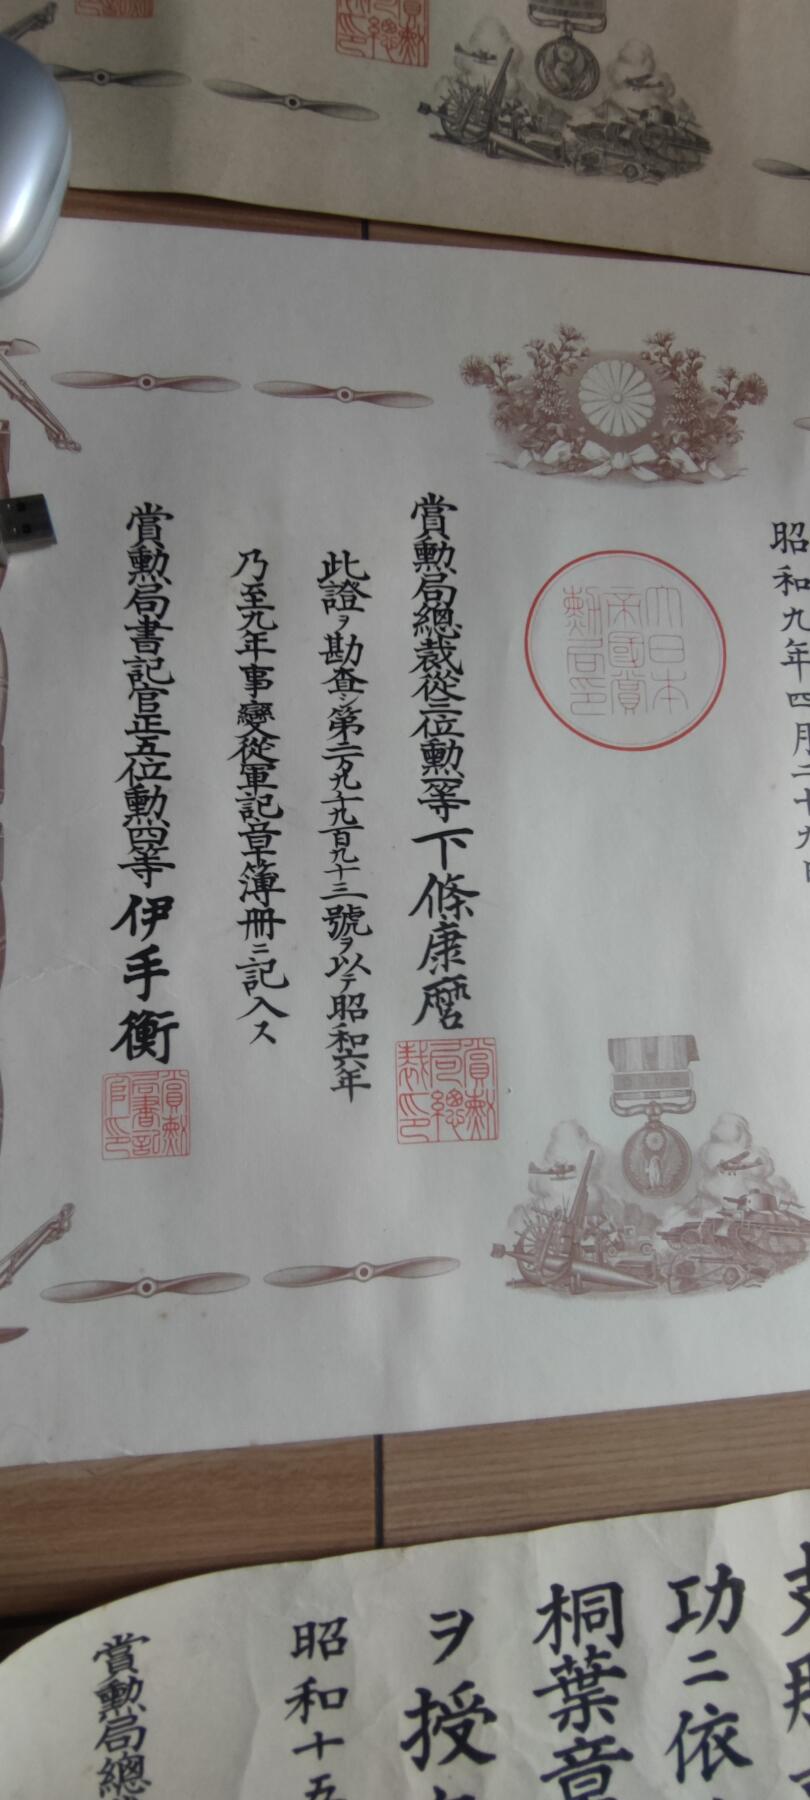 昭和九年四月二十九日
大日本
帝國賞
勳局印
賞勳局總裁從三位勳一等下條康麿
賞勳
局總
裁印
此證ヲ勘査シ第二万九千九百九十三號ヲ以テ昭和六年
乃至九年事變從軍記章簿冊ニ記入ス
賞勳局書記官正五位勳四等伊手衡
賞勳
局書記
官印
功ニ依
桐葉章
ヲ授
昭和十五
賞勳局總